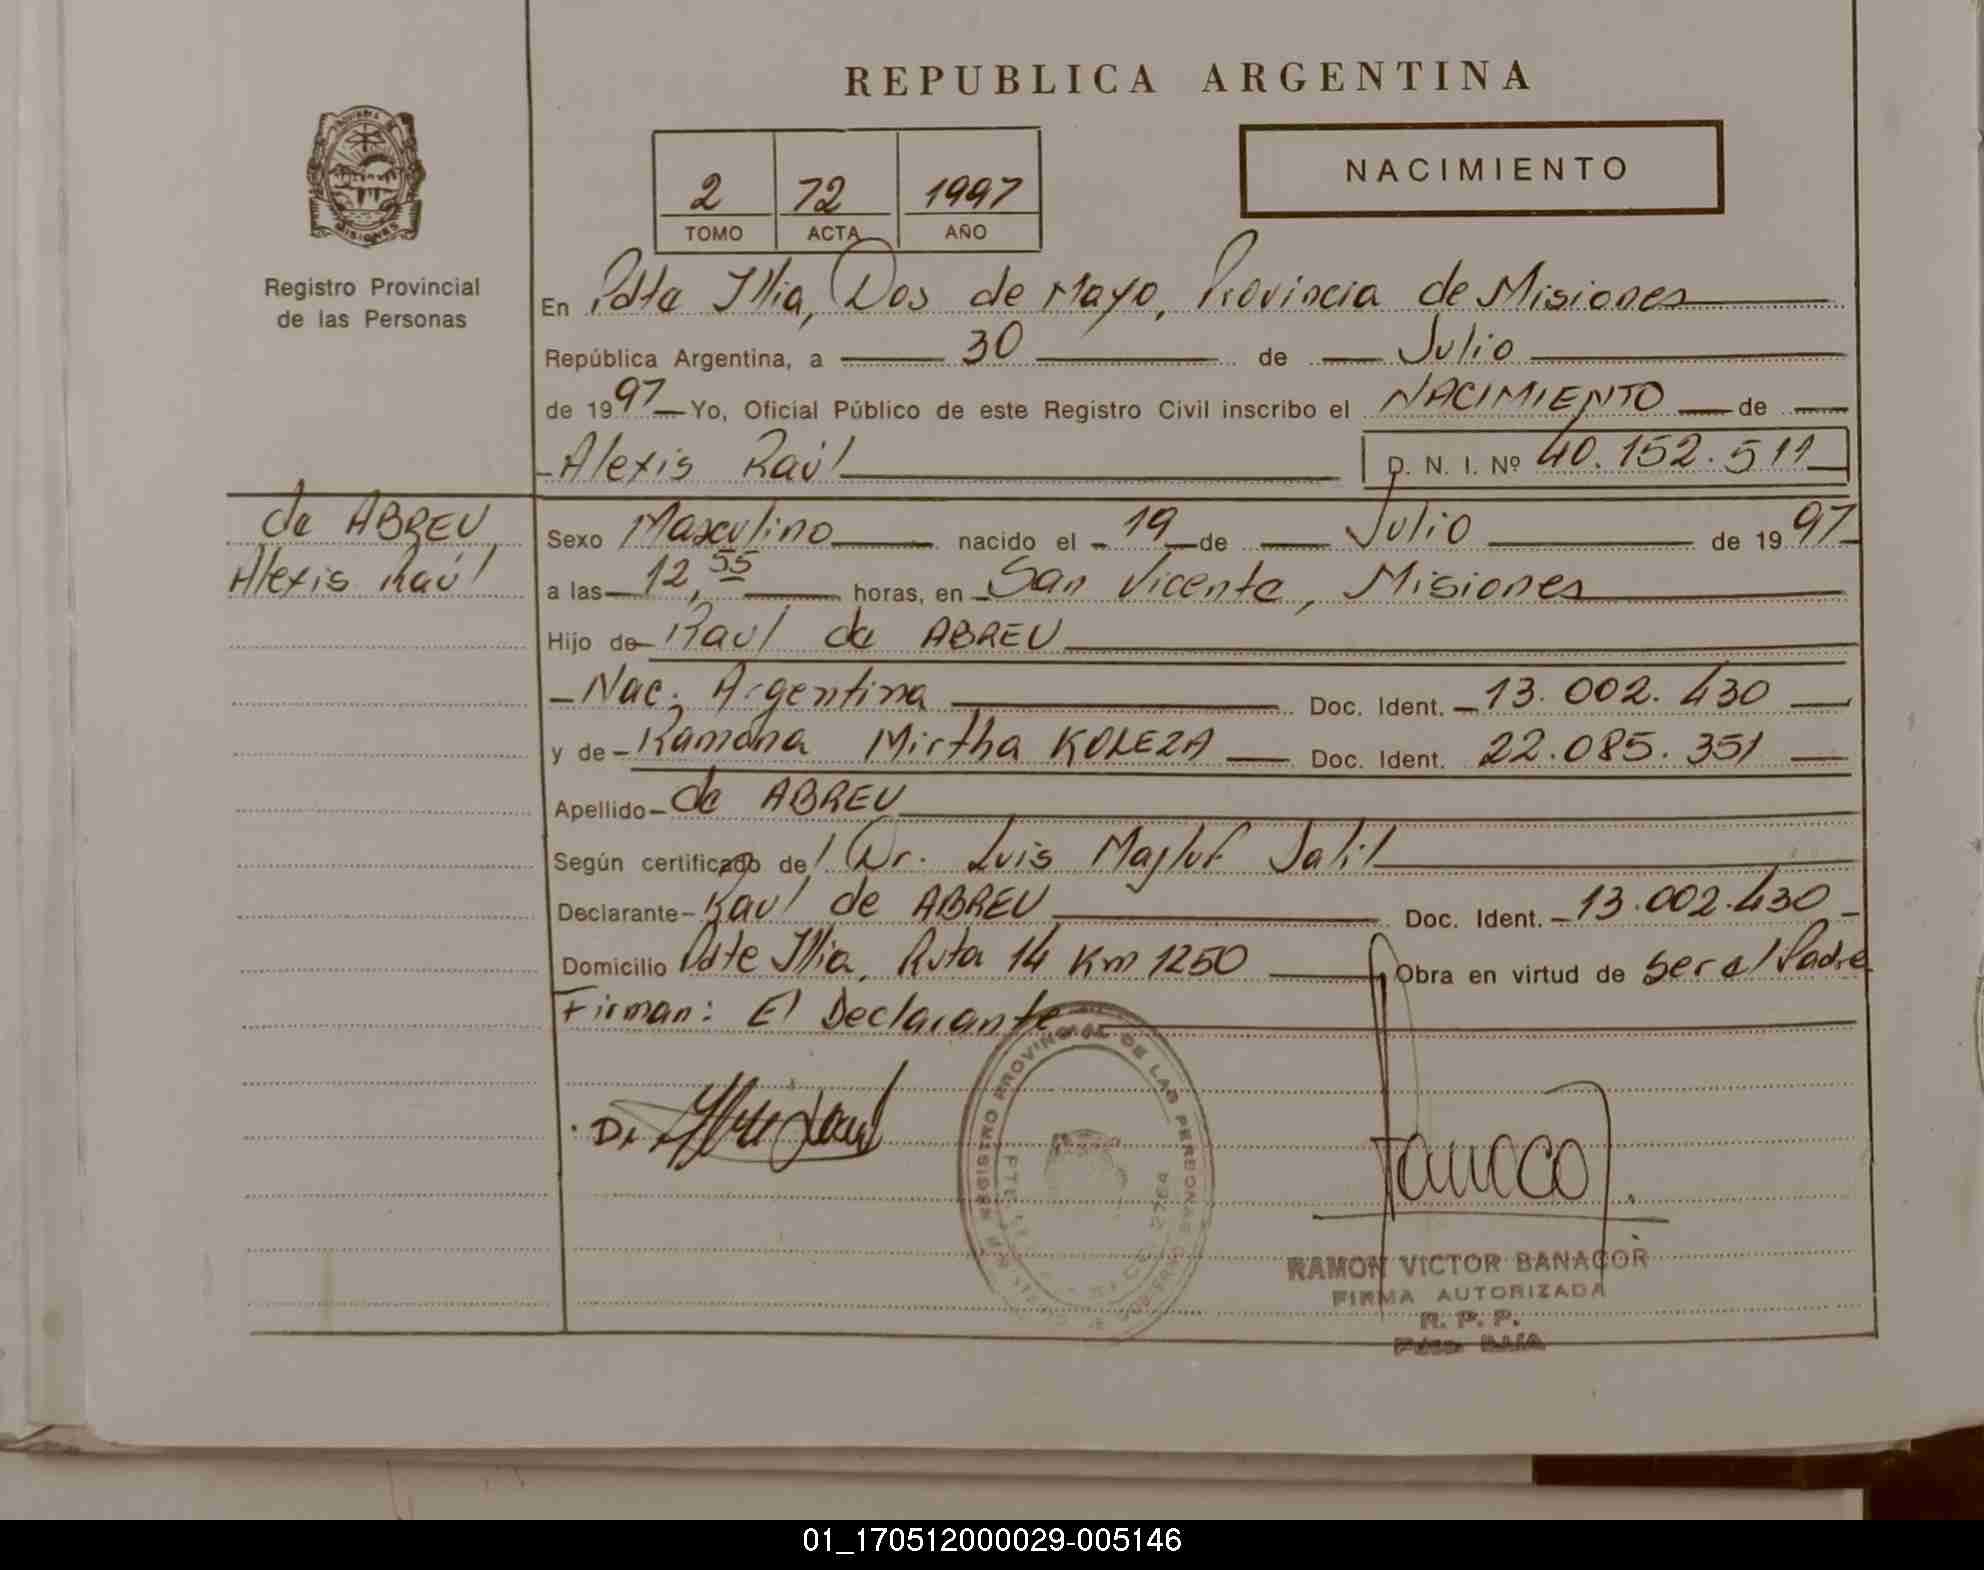 REPUBLICA ARGENTINA
NACIMIENTO
2 72 1997
TOMO ACTA AÑO
Registro Provincial
de las Personas
En Pdte Illia, Dos de Mayo, Provincia de Misiones
República Argentina, a 30 de Julio
de 1997 Yo, Oficial Público de este Registro Civil inscribo el NACIMIENTO de
Alexis Raúl D. N. I. Nº 40.152.511
de ABREU
Alexis Raúl
Sexo Masculino nacido el 19 de Julio de 1997
a las 12,55 horas, en San Vicente, Misiones
Hijo de Raul de ABREU
Nac. Argentina Doc. Ident. 13.002.430
y de Ramona Mirtha KOLEZA Doc. Ident. 22.085.351
Apellido de ABREU
Según certificado de Dr. Luis Majluf Jalil
Declarante Raul de ABREU Doc. Ident. 13.002.430
Domicilio Pdte Illia, Ruta 14 Km 1250 Obra en virtud de ser el Padre
Firman: El Declarante
REGISTRO PROVINCIAL DE LAS PERSONAS
RAMON VICTOR BANACOR
FIRMA AUTORIZADA
R. P. P.
Pdte. ILLIA
01_170512000029-005146